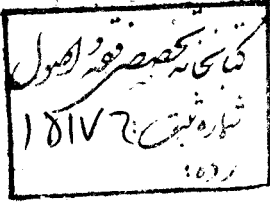 کتابخانه تخصصی فقه و اصول
شماره ثبت: ۱۵۱۷۶
رده: